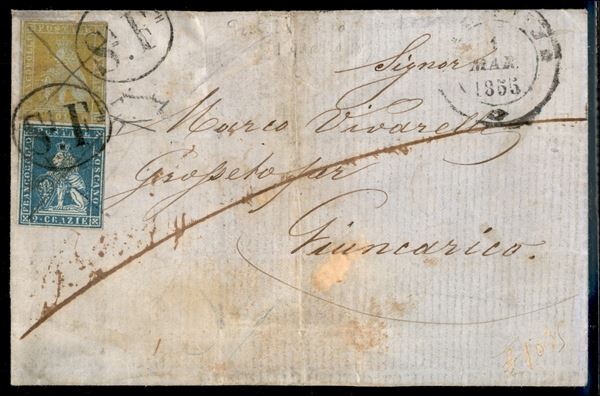 S.F
S.F
FRANCOBOLLO
POSTALE
TOSCANO
2·CRAZIE
1
MAR.
1855
Signor
Marco Vivarelli
Grosseto per
Giuncarico.